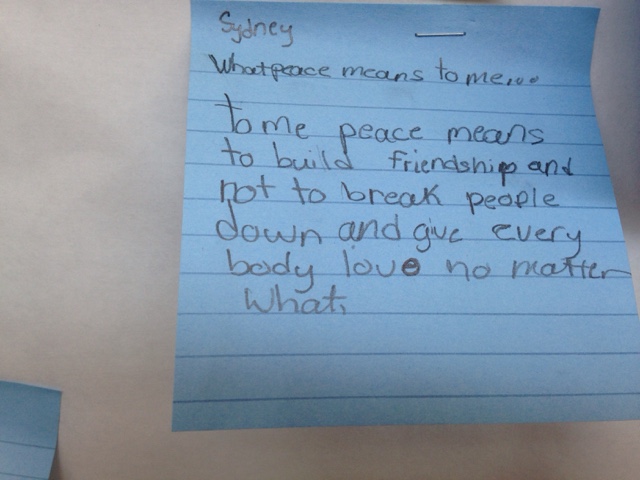 Sydney
What peace means to me...
to me peace means
to build friendship and
not to break people
down and give every
body love no matter
what.